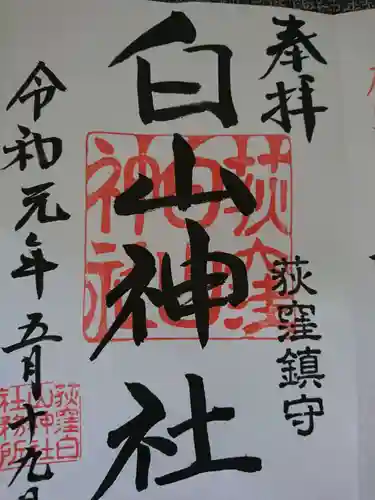 奉拝
荻窪鎮守
白山神社
荻窪白山神社
令和元年五月十九日
荻窪白
山神社
社務所